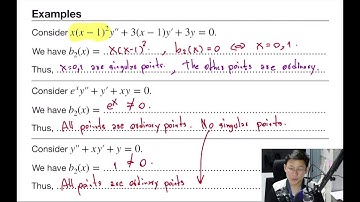 Examples
Consider x(x − 1)²y″ + 3(x − 1)y′ + 3y = 0.
We have b₂(x) = x(x-1)², b₂(x) = 0 ⇔ x = 0, 1.
Thus, x=0,1 are singular points. The other points are ordinary.
Consider eˣy″ + y′ + xy = 0.
We have b₂(x) = eˣ ≠ 0.
Thus, All points are ordinary points. No singular points.
Consider y″ + xy′ + y = 0.
We have b₂(x) = 1 ≠ 0.
Thus, All points are ordinary points